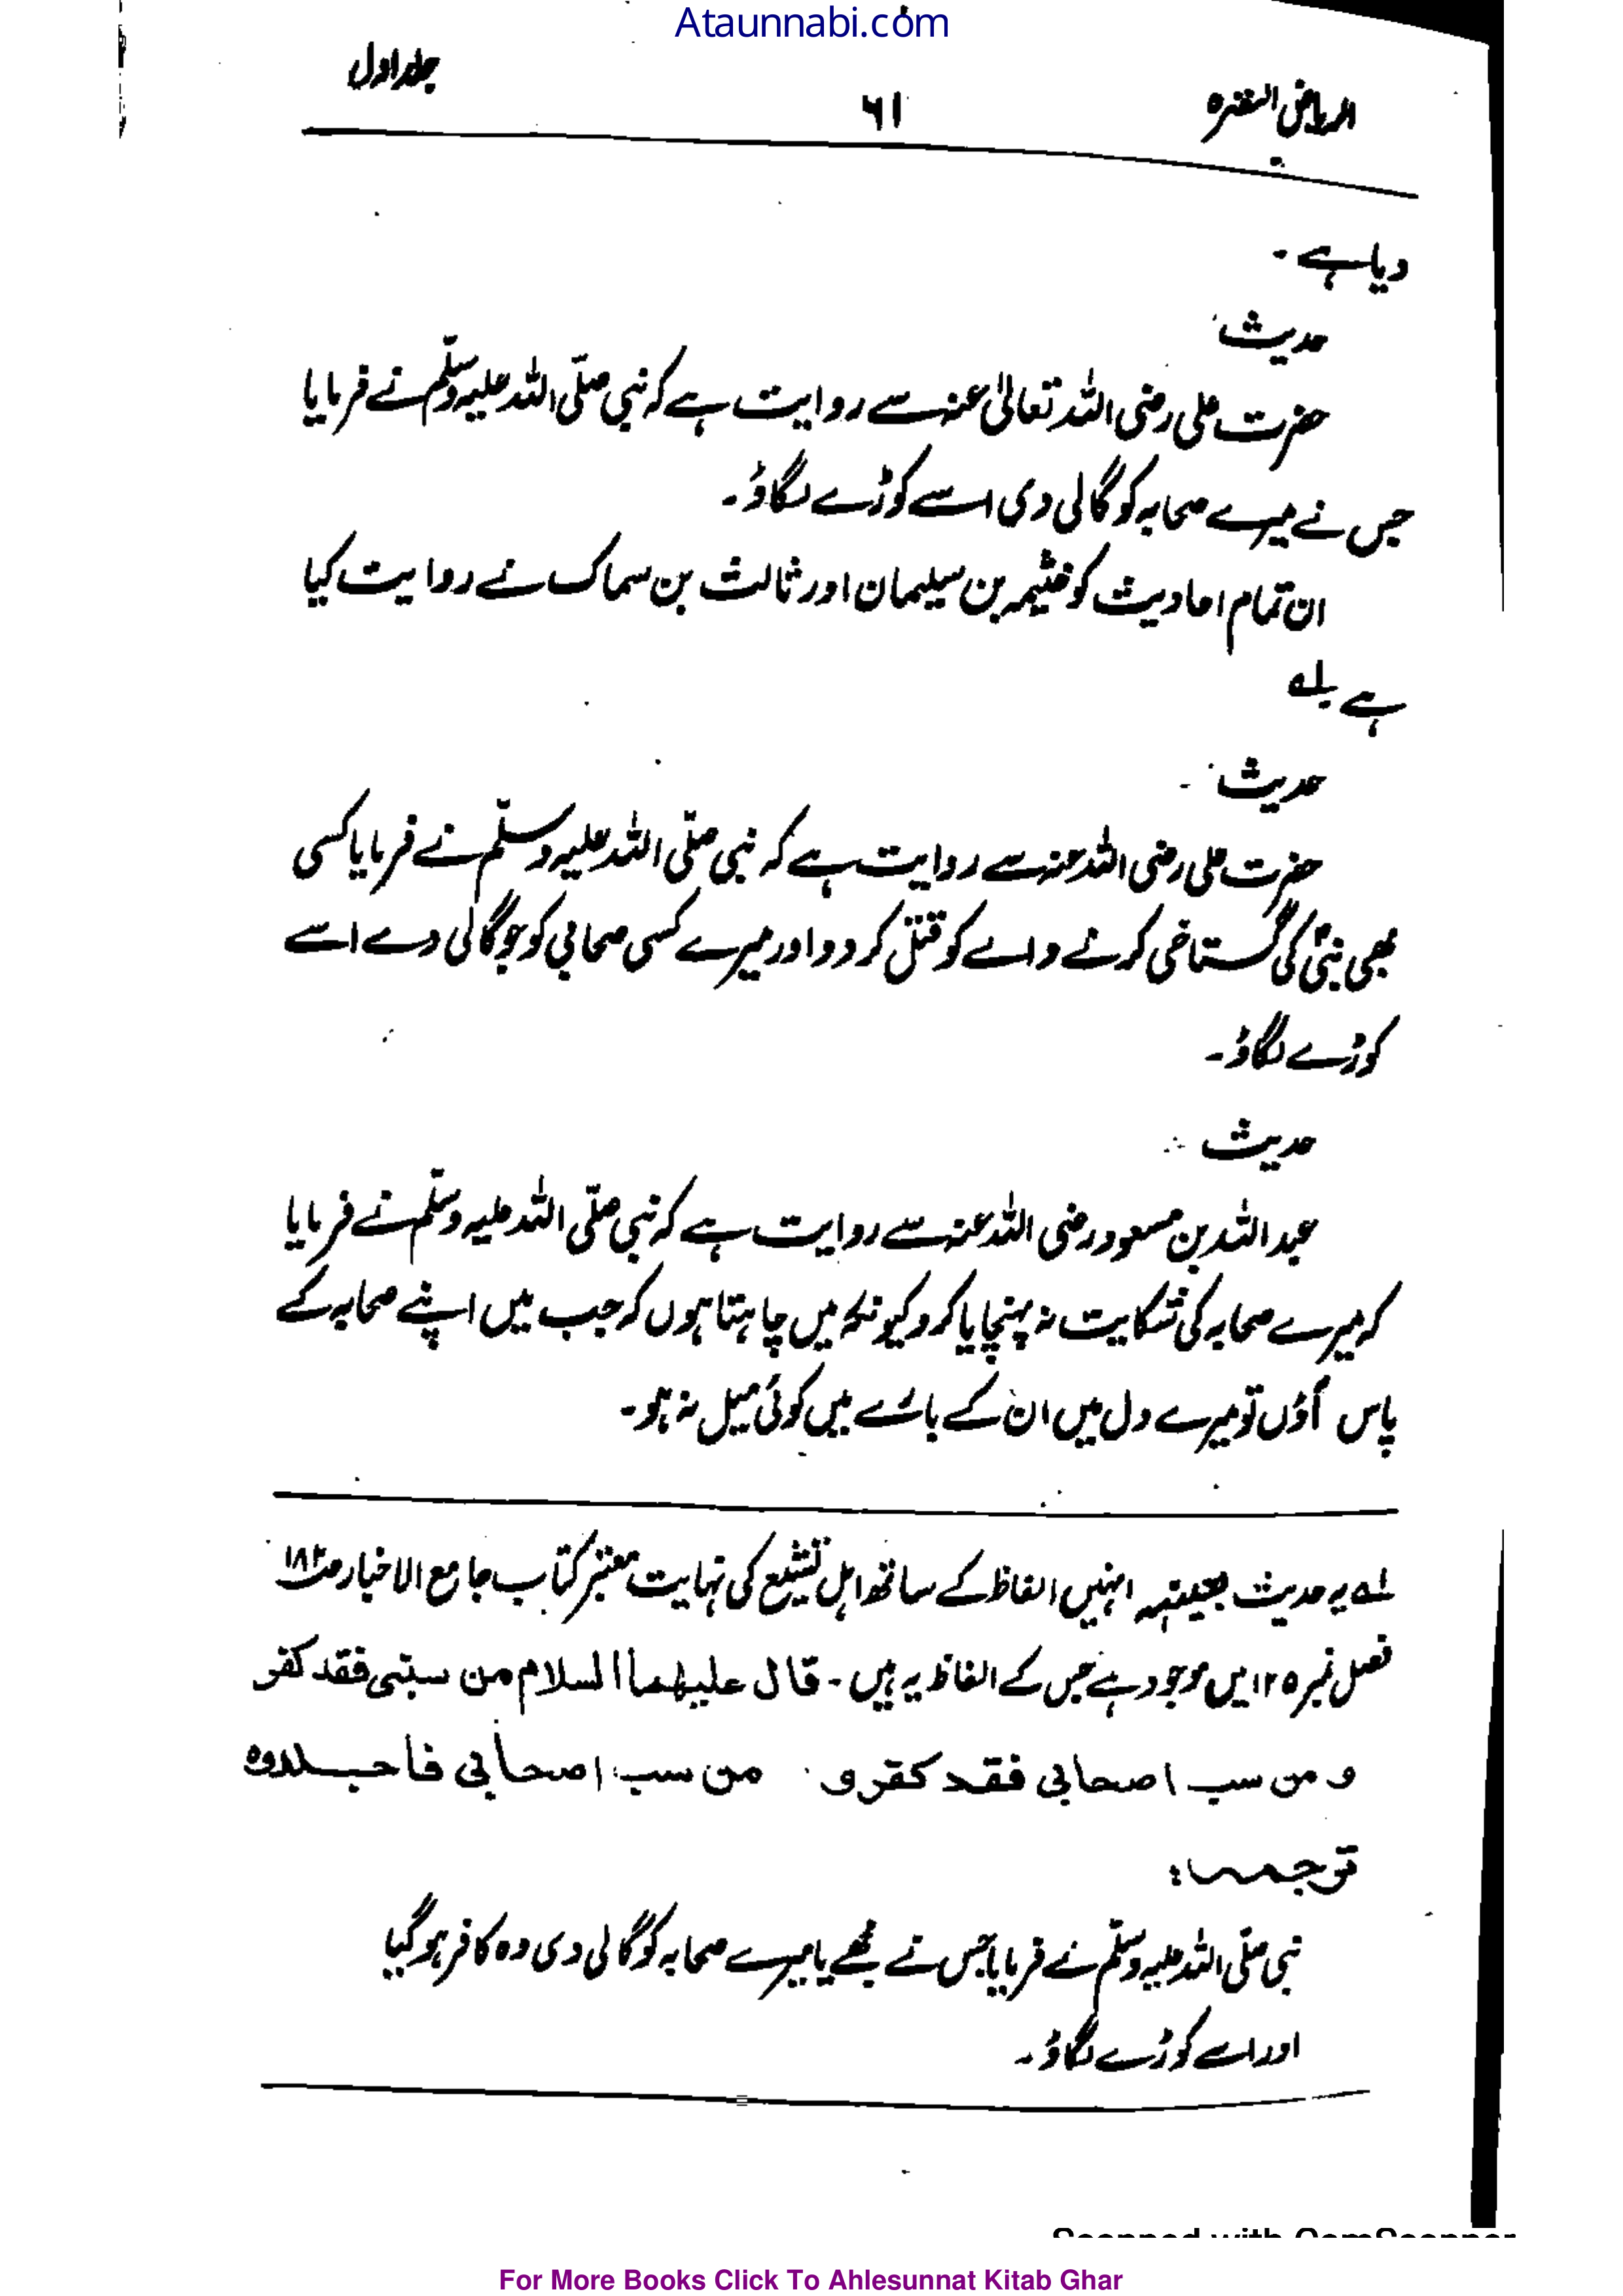 Ataunnabi.com
الریاض النضرہ ۶۱ جلد اول
دیا ہے۔
حدیث
حضرت علی رضی اللہ تعالیٰ عنہ سے روایت ہے کہ نبی صلّی اللہ علیہ وسلّم نے فرمایا
جس نے میرے صحابہ کو گالی دی اسے کوڑے لگاؤ۔
ان تمام احادیث کو خثیمہ بن سلیمان اور ثالث بن سماک نے روایت کیا
ہے۔ لہ
حدیث۔
حضرت علی رضی اللہ عنہ سے روایت ہے کہ نبی صلّی اللہ علیہ وسلّم نے فرمایا کسی
بھی نبی کی گستاخی کرنے والے کو قتل کر دو اور میرے کسی صحابی کو جو گالی دے اسے
کوڑے لگاؤ۔
حدیث
عبداللہ بن مسعود رضی اللہ عنہ سے روایت ہے کہ نبی صلّی اللہ علیہ وسلّم نے فرمایا
کہ میرے صحابہ کی شکایت نہ پہنچایا کرو کیونکہ میں چاہتا ہوں کہ جب میں اپنے صحابہ کے
پاس آؤں تو میرے دل میں ان کے بارے میں کوئی میل نہ ہو۔
لہ یہ حدیث بعینہٖ انہیں الفاظ کے ساتھ اہل تشیع کی نہایت معتبر کتاب جامع الاخبار ص۱۸۲
فصل نمبر ۱۲۵ میں موجود ہے جس کے الفاظ یہ ہیں۔ قال علیهما السلام من سبّنی فقد کفر
و من سب اصحابی فقد کفر و من سب اصحابی فاجلدوہ
ترجمہ:
نبی صلّی اللہ علیہ وسلّم نے فرمایا جس نے مجھے یا میرے صحابہ کو گالی دی وہ کافر ہو گیا
اور اسے کوڑے لگاؤ۔
Scanned with CamScanner
For More Books Click To Ahlesunnat Kitab Ghar